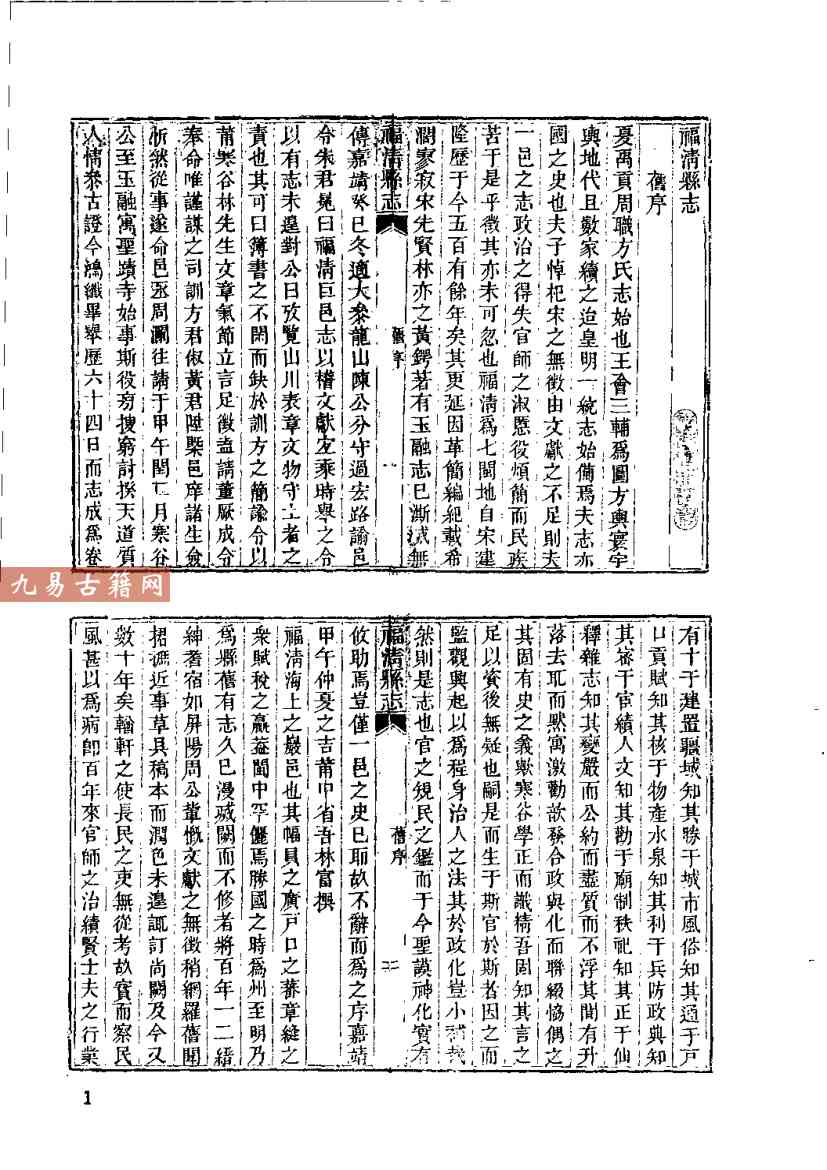 福清縣志
舊序
夏禹貢周職方氏志始也王會三輔爲圖方輿寰宇
輿地代且數家續之迨皇明一統志始備焉夫志亦
國之史也夫子悼杞宋之無徵由文獻之不足則夫
一邑之志政治之得失官師之淑慝役煩簡而民疾
苦于是乎徵其亦未可忽也福清爲七閩地自宋建
隆歷于今五百有餘年矣其更延因革簡編紀載希
濶寥寂宋先賢林亦之黃鍔著有玉融志已漸滅無
福清縣志
舊序
一
傳嘉靖癸巳冬適大參龍山陳公分守過宏路諭邑
令朱君晃曰福清巨邑志以稽文獻左乘時舉之令
以有志未遑對公曰攷覽山川表章文物守土者之
責也其可曰簿書之不閑而缺於訓方之簡諭令以
莆寒谷林先生文章氣節立言足徵盍請董厥成令
奉命唯謹謀之司訓方君俶黃君陞槩邑庠諸生僉
忻然從事遂命邑丞周瀾往請于甲午閏二月寒谷
公至玉融寓聖蹟寺始事斯役旁搜窮討揆天道質
人情參古證今鴻纖畢舉歷六十四日而志成爲卷
有十于建置疆域知其勝于城市風俗知其通于戸
口貢賦知其核于物產水泉知其利于兵防政典知
其審于宦績人文知其勸于廟制秩祀知其正于仙
釋雜志知其變嚴而公約而盡質而不浮其間有升
落去取而默寓激勸歆發合政與化而聯綴恊偶之
其固有史之義歟寒谷學正而識精吾固知其言之
足以資後無疑也嗣是而生于斯官於斯者因之而
監觀興起以爲程身治人之法其於政化豈小補哉
然則是志也官之䂓民之鑑而于今聖謨神化實有
福清縣志
舊序
二
攸助焉豈僅一邑之史已耶故不辭而爲之序嘉靖
甲午仲夏之吉莆中省吾林富撰
福清海上之巖邑也其幅員之廣戸口之蕃章縫之
衆賦稅之贏葢閩中罕儷焉勝國之時爲州至明乃
爲縣舊有志久已漫滅闕而不修者將百年一二縉
紳耆宿如屏陽周公輩慨文獻之無徵稍網羅舊聞
捃摭近事草具稿本而潤色未遑諏訂尚闕及今又
數十年矣輶軒之使長民之吏無從考故實而察民
風甚以爲病卽百年來官師之治績賢士夫之行業
九易古籍网
1